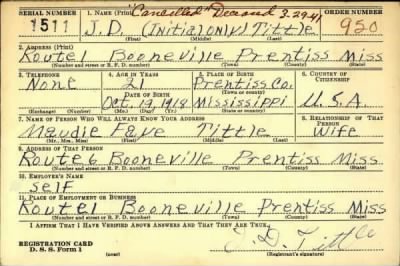 SERIAL NUMBER 1. NAME (Print) "Cancelled" Deceased 3-29-41 ORDER NUMBER
1511 J. D. (Initial only) Tittle 950
(First) (Middle) (Last)
2. ADDRESS (Print)
Route 1 Booneville Prentiss Miss
(Number and street or R. F. D. number) (Town) (County) (State)
3. TELEPHONE 4. AGE IN YEARS 5. PLACE OF BIRTH 6. COUNTRY OF CITIZENSHIP
None 21 Prentiss Co.
DATE OF BIRTH (Town or county)
Oct. 19, 1918 Mississippi U.S.A.
(Exchange) (Number) (Mo.) (Day) (Yr.) (State or country)
7. NAME OF PERSON WHO WILL ALWAYS KNOW YOUR ADDRESS 8. RELATIONSHIP OF THAT PERSON
Maudie Faye Tittle Wife
(Mr., Mrs., Miss) (First) (Middle) (Last)
9. ADDRESS OF THAT PERSON
Route 6 Booneville Prentiss Miss
(Number and street or R. F. D. number) (Town) (County) (State)
10. EMPLOYER'S NAME
self
11. PLACE OF EMPLOYMENT OR BUSINESS
Route 1 Booneville Prentiss Miss
(Number and street or R. F. D. number) (Town) (County) (State)
I AFFIRM THAT I HAVE VERIFIED ABOVE ANSWERS AND THAT THEY ARE TRUE.
REGISTRATION CARD J. D. Tittle
D. S. S. Form 1 (over) (Registrant's signature)